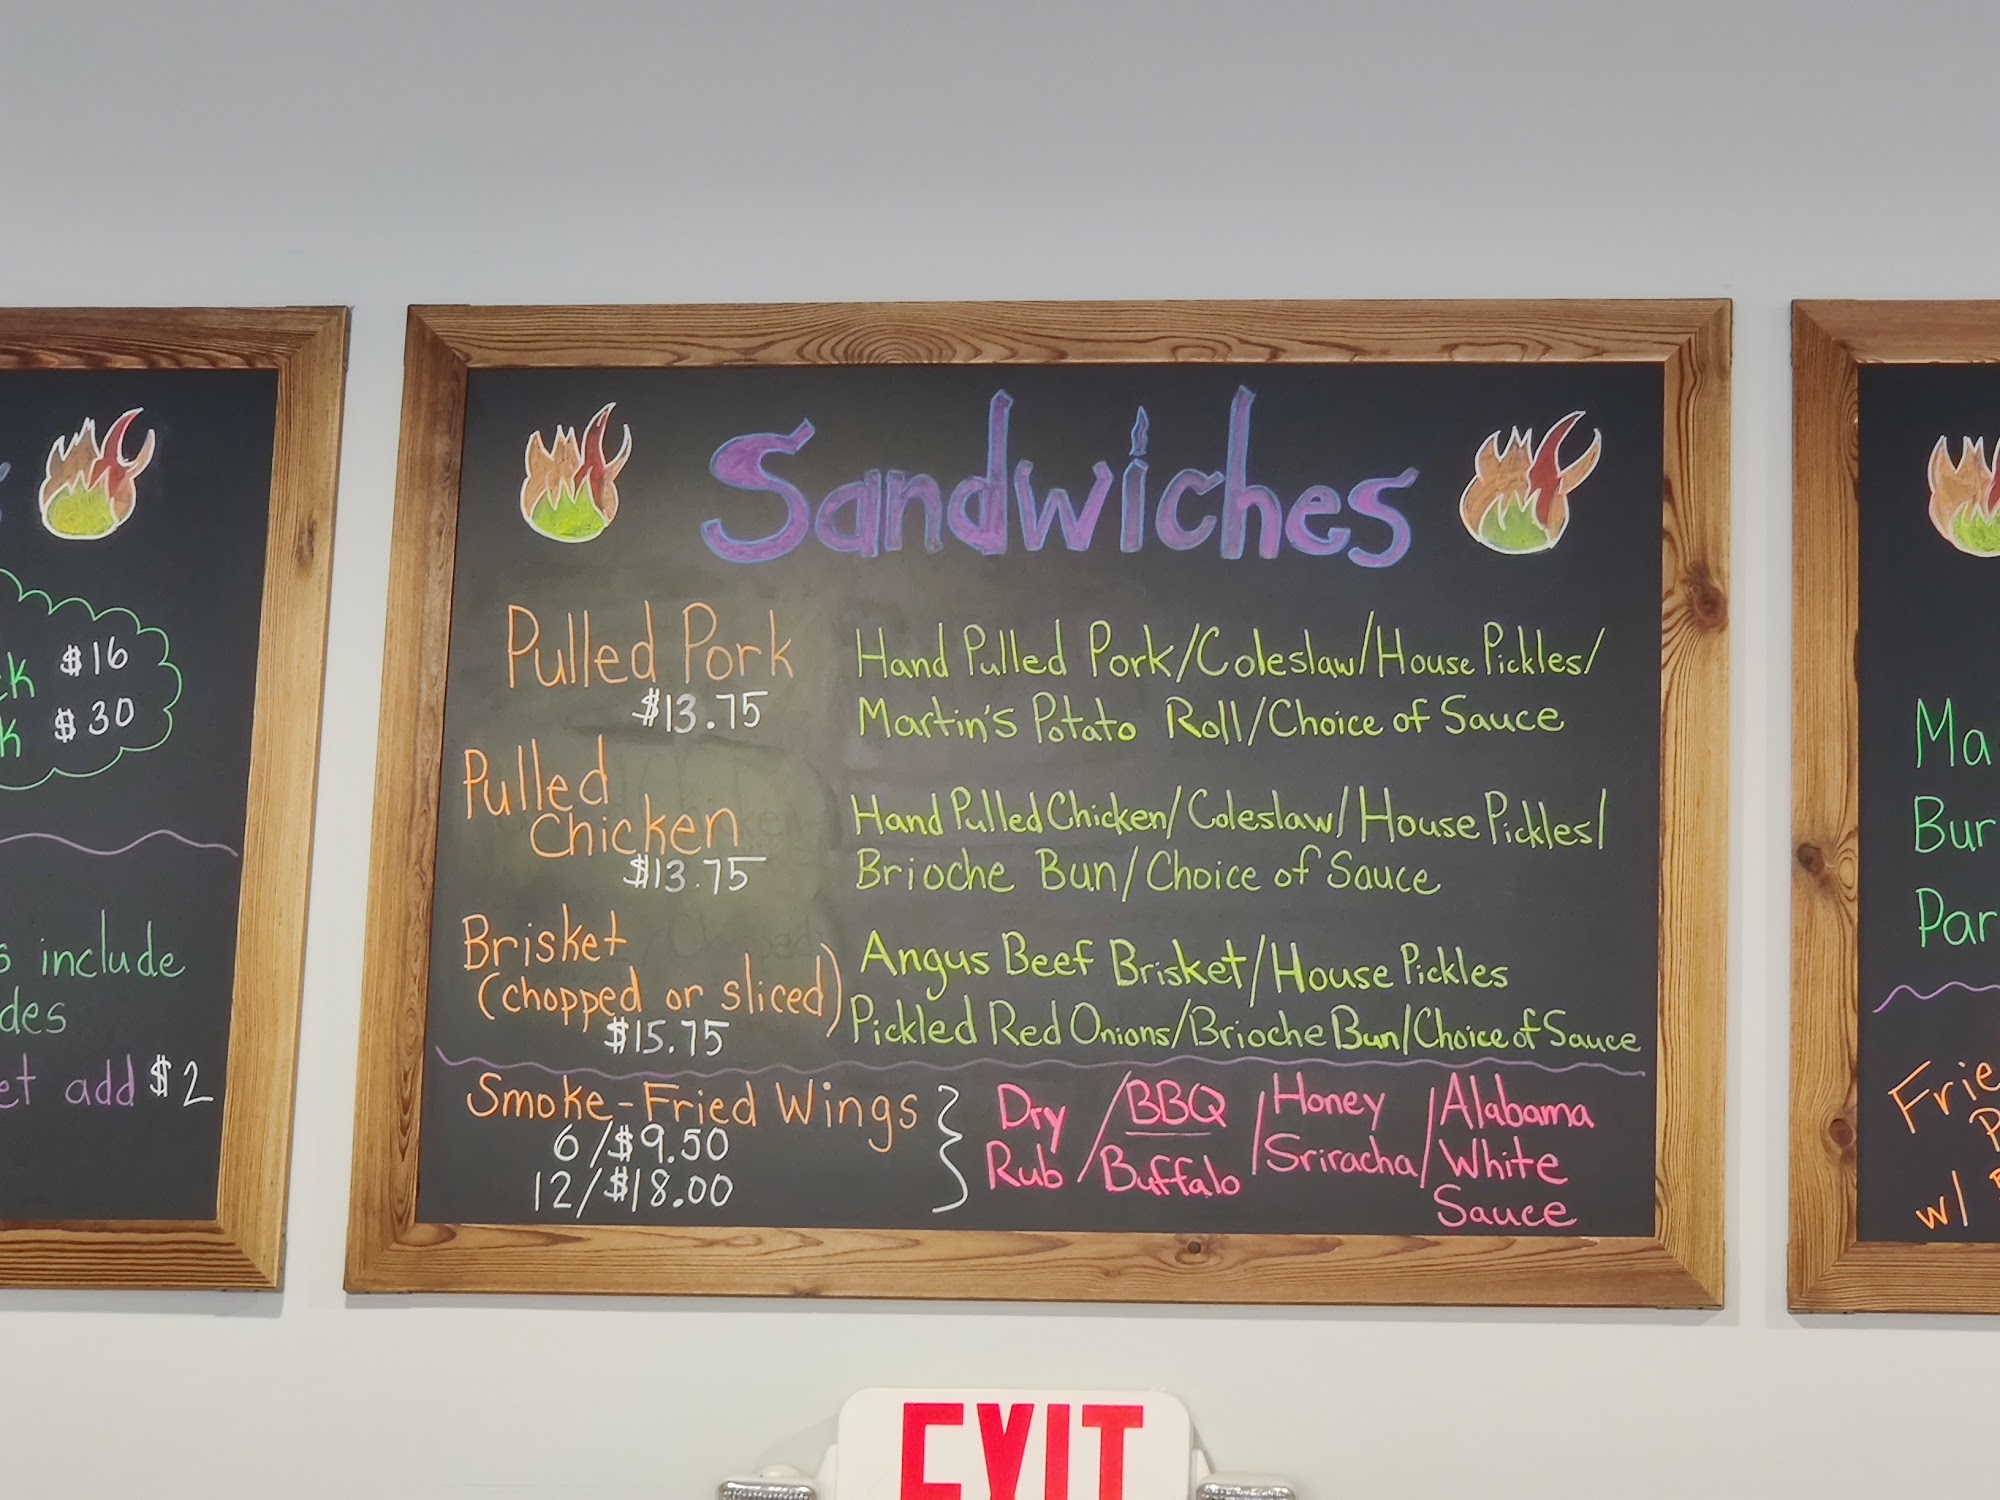 $16
$30
include
add $2
Sandwiches
Pulled Pork
$13.75
Hand Pulled Pork/Coleslaw/House Pickles/
Martin's Potato Roll/Choice of Sauce
Pulled
Chicken
$13.75
Hand Pulled Chicken/Coleslaw/House Pickles/
Brioche Bun/Choice of Sauce
Brisket
(chopped or sliced)
$15.75
Angus Beef Brisket/House Pickles
Pickled Red Onions/Brioche Bun/Choice of Sauce
Smoke-Fried Wings
6/$9.50
12/$18.00
Dry / BBQ / Honey / Alabama
Rub / Buffalo / Sriracha / White
Sauce
w/
EXIT